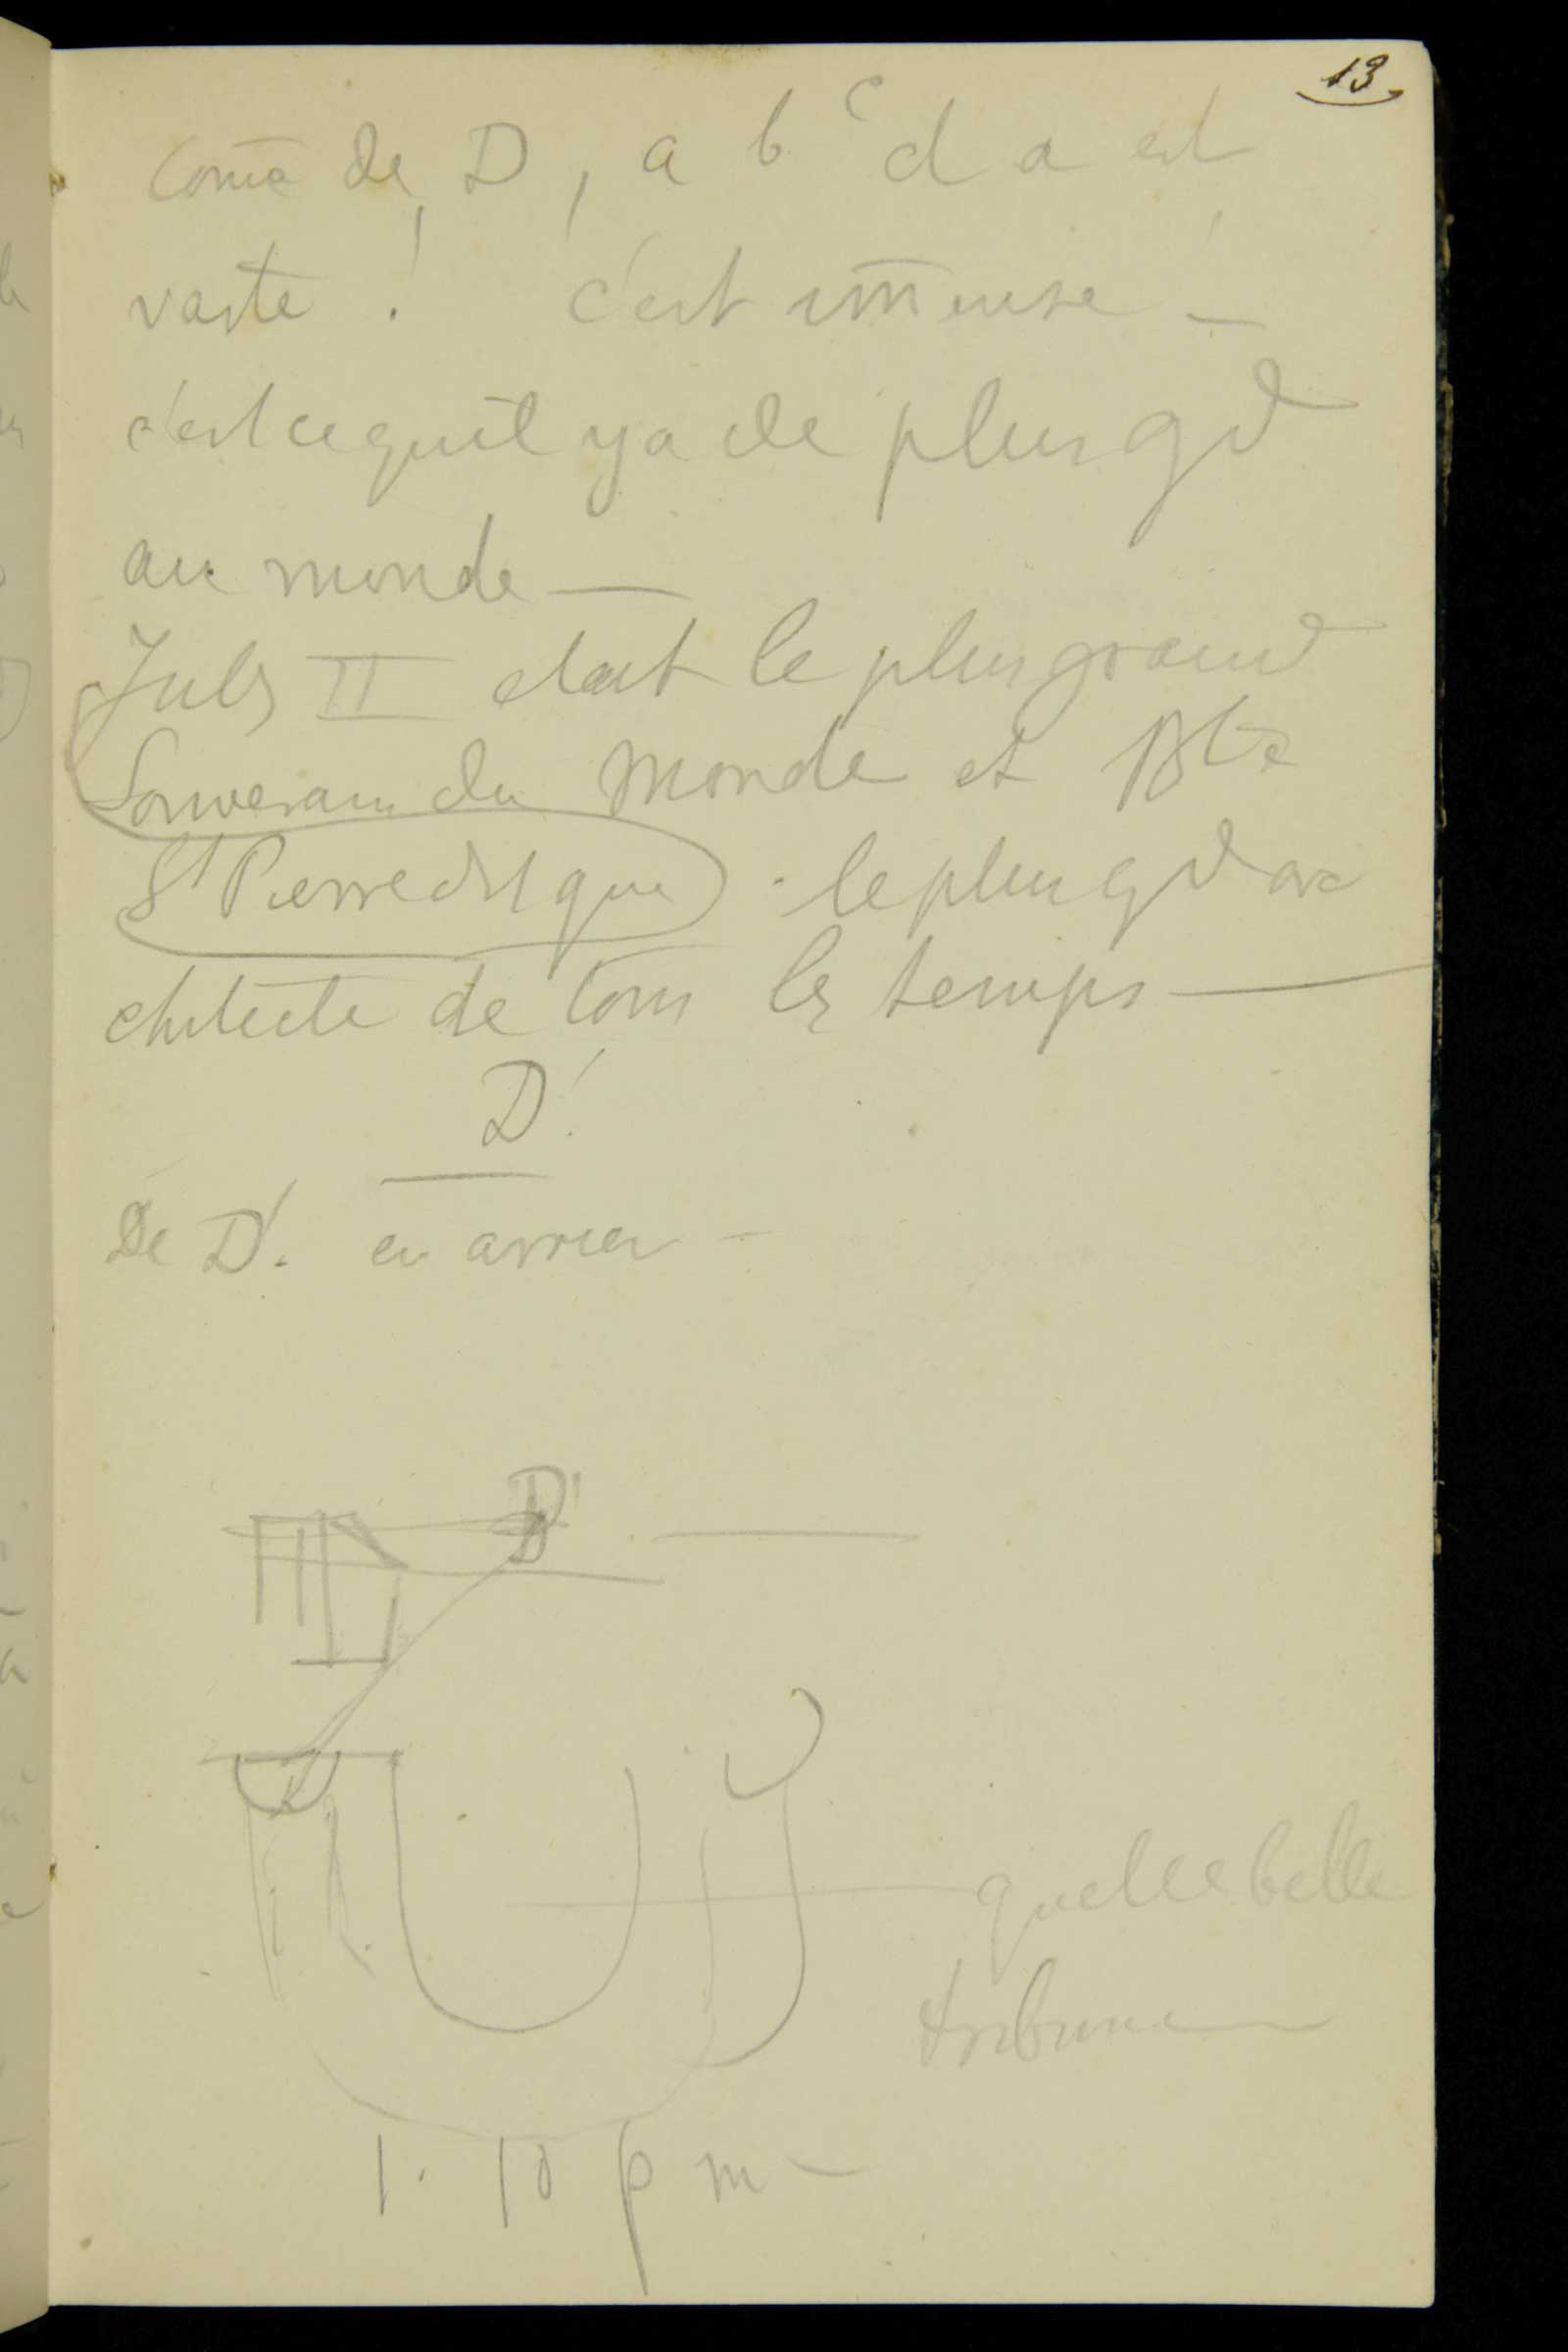 13
com̄e de D, a b c d a est
vaste ! c'est im̄ense —
c'est ce qu'il y a de plus gd
au monde —
Jules II etait le plus grand
Souverain du Monde et
St Pierre dit que . le plus gd ar
chitecte de tous les temps —
D'
De D'. en arrier —
D'
quelle belle
tribune —
1. 10 p m —